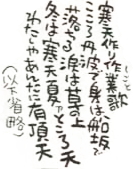 寒天作り作業歌
しごと
こころ丹波で身は船坂で
落ちる涙は草の上
冬は寒天夏でところ天
わたしゃあんたに有頂天
（以下省略）